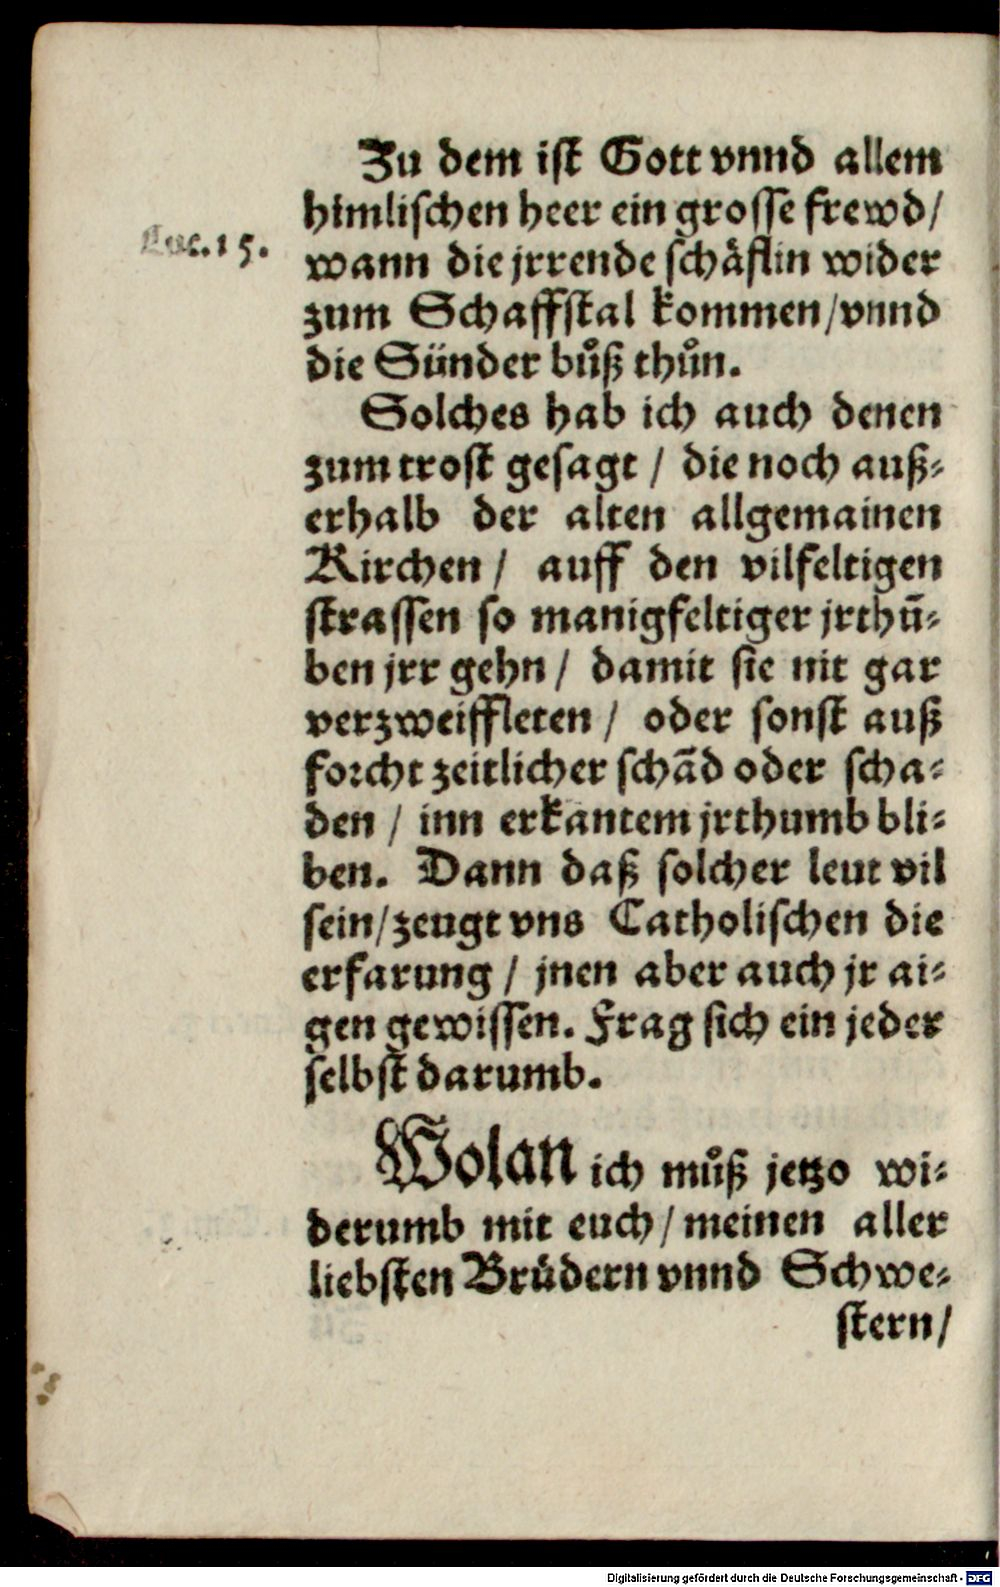 Zu dem ist Gott vnnd allem
himlischen heer ein grosse frewd/
Luc. 15.
wann die jrrende schäflin wider
zum Schaffstal kommen/vnnd
die Sünder bůß thůn.
Solches hab ich auch denen
zum trost gesagt / die noch auß-
erhalb der alten allgemainen
Kirchen / auff den vilfeltigen
strassen so manigfeltiger jrthū-
ben jrr gehn / damit sie nit gar
verzweiffleten / oder sonst auß
forcht zeitlicher schād oder scha-
den / inn erkantem jrthumb bli-
ben. Dann daß solcher leut vil
sein/zeugt vns Catholischen die
erfarung / jnen aber auch jr ai-
gen gewissen. Frag sich ein jeder
selbst darumb.
Wolan ich můß jetzo wi-
derumb mit euch/meinen aller
liebsten Brüdern vnnd Schwe-
stern/
Digitalisierung gefördert durch die Deutsche Forschungsgemeinschaft - DFG